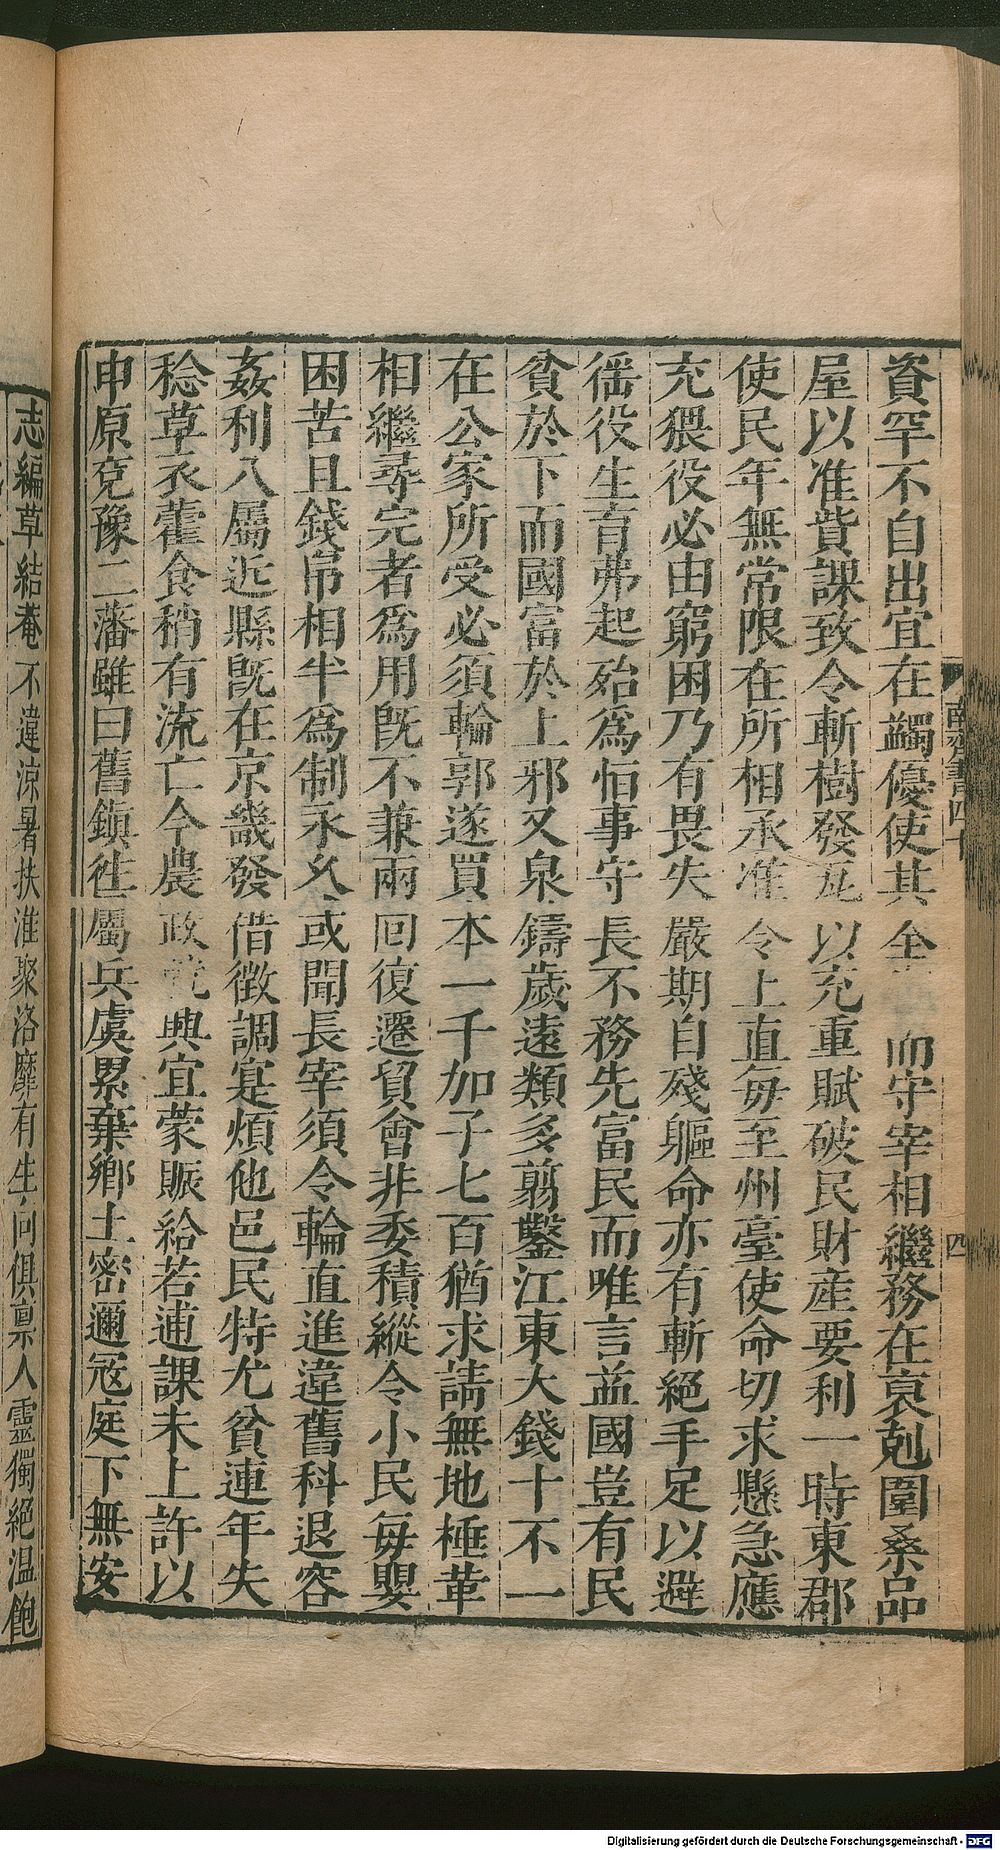 資罕不自出宜在蠲優使其全而守宰相繼務在裒剋圍桑品
屋以准貲課致令斬樹發瓦以充重賦破民財産要利一時東郡
使民年無常限在所相承准令上直毎至州臺使命切求懸急應
充猥役必由窮困乃有畏失嚴期自殘軀命亦有斬絕手足以避
徭役生育弗起殆爲怕事守長不務先富民而唯言益國豈有民
貧於下而國富於上邪又泉鑄歲遠類多翦鑿江東大錢十不一
在公家所受必須輪郭遂買本一千加子七百猶求請無地棰革
相繼尋完者爲用旣不兼兩囘復遷貿會非委積縱令小民毎嬰
困苦且錢帛相半爲制永久或聞長宰須令輪直進違舊科退容
姦利八屬近縣旣在京畿發借徵調寔煩他邑民特尤貧連年失
稔草衣藿食稍有流亡今農政就興宜蒙賑給若逋課未上許以
申原兗豫二藩雖曰舊鎭徃屬兵虞累棄鄕土密邇寇庭下無安
志編草結菴不違涼暑扶淮聚洛靡有生向俱禀人靈獨絕温飽
南齊書四十
四
Digitalisierung gefördert durch die Deutsche Forschungsgemeinschaft - DFG